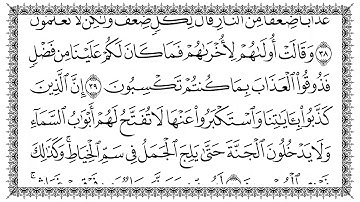 عَذَابًا ضِعْفًا مِّنَ النَّارِ قَالَ لِكُلٍّ ضِعْفٌ وَلَٰكِن لَّا تَعْلَمُونَ
٣٨ وَقَالَتْ أُولَىٰهُمْ لِأُخْرَىٰهُمْ فَمَا كَانَ لَكُمْ عَلَيْنَا مِن فَضْلٍ
فَذُوقُوا۟ الْعَذَابَ بِمَا كُنتُمْ تَكْسِبُونَ ٣٩ إِنَّ الَّذِينَ
كَذَّبُوا۟ بِـَٔايَٰتِنَا وَاسْتَكْبَرُوا۟ عَنْهَا لَا تُفَتَّحُ لَهُمْ أَبْوَٰبُ السَّمَآءِ
وَلَا يَدْخُلُونَ الْجَنَّةَ حَتَّىٰ يَلِجَ الْجَمَلُ فِي سَمِّ الْخِيَاطِ ۚ وَكَذَٰلِكَ